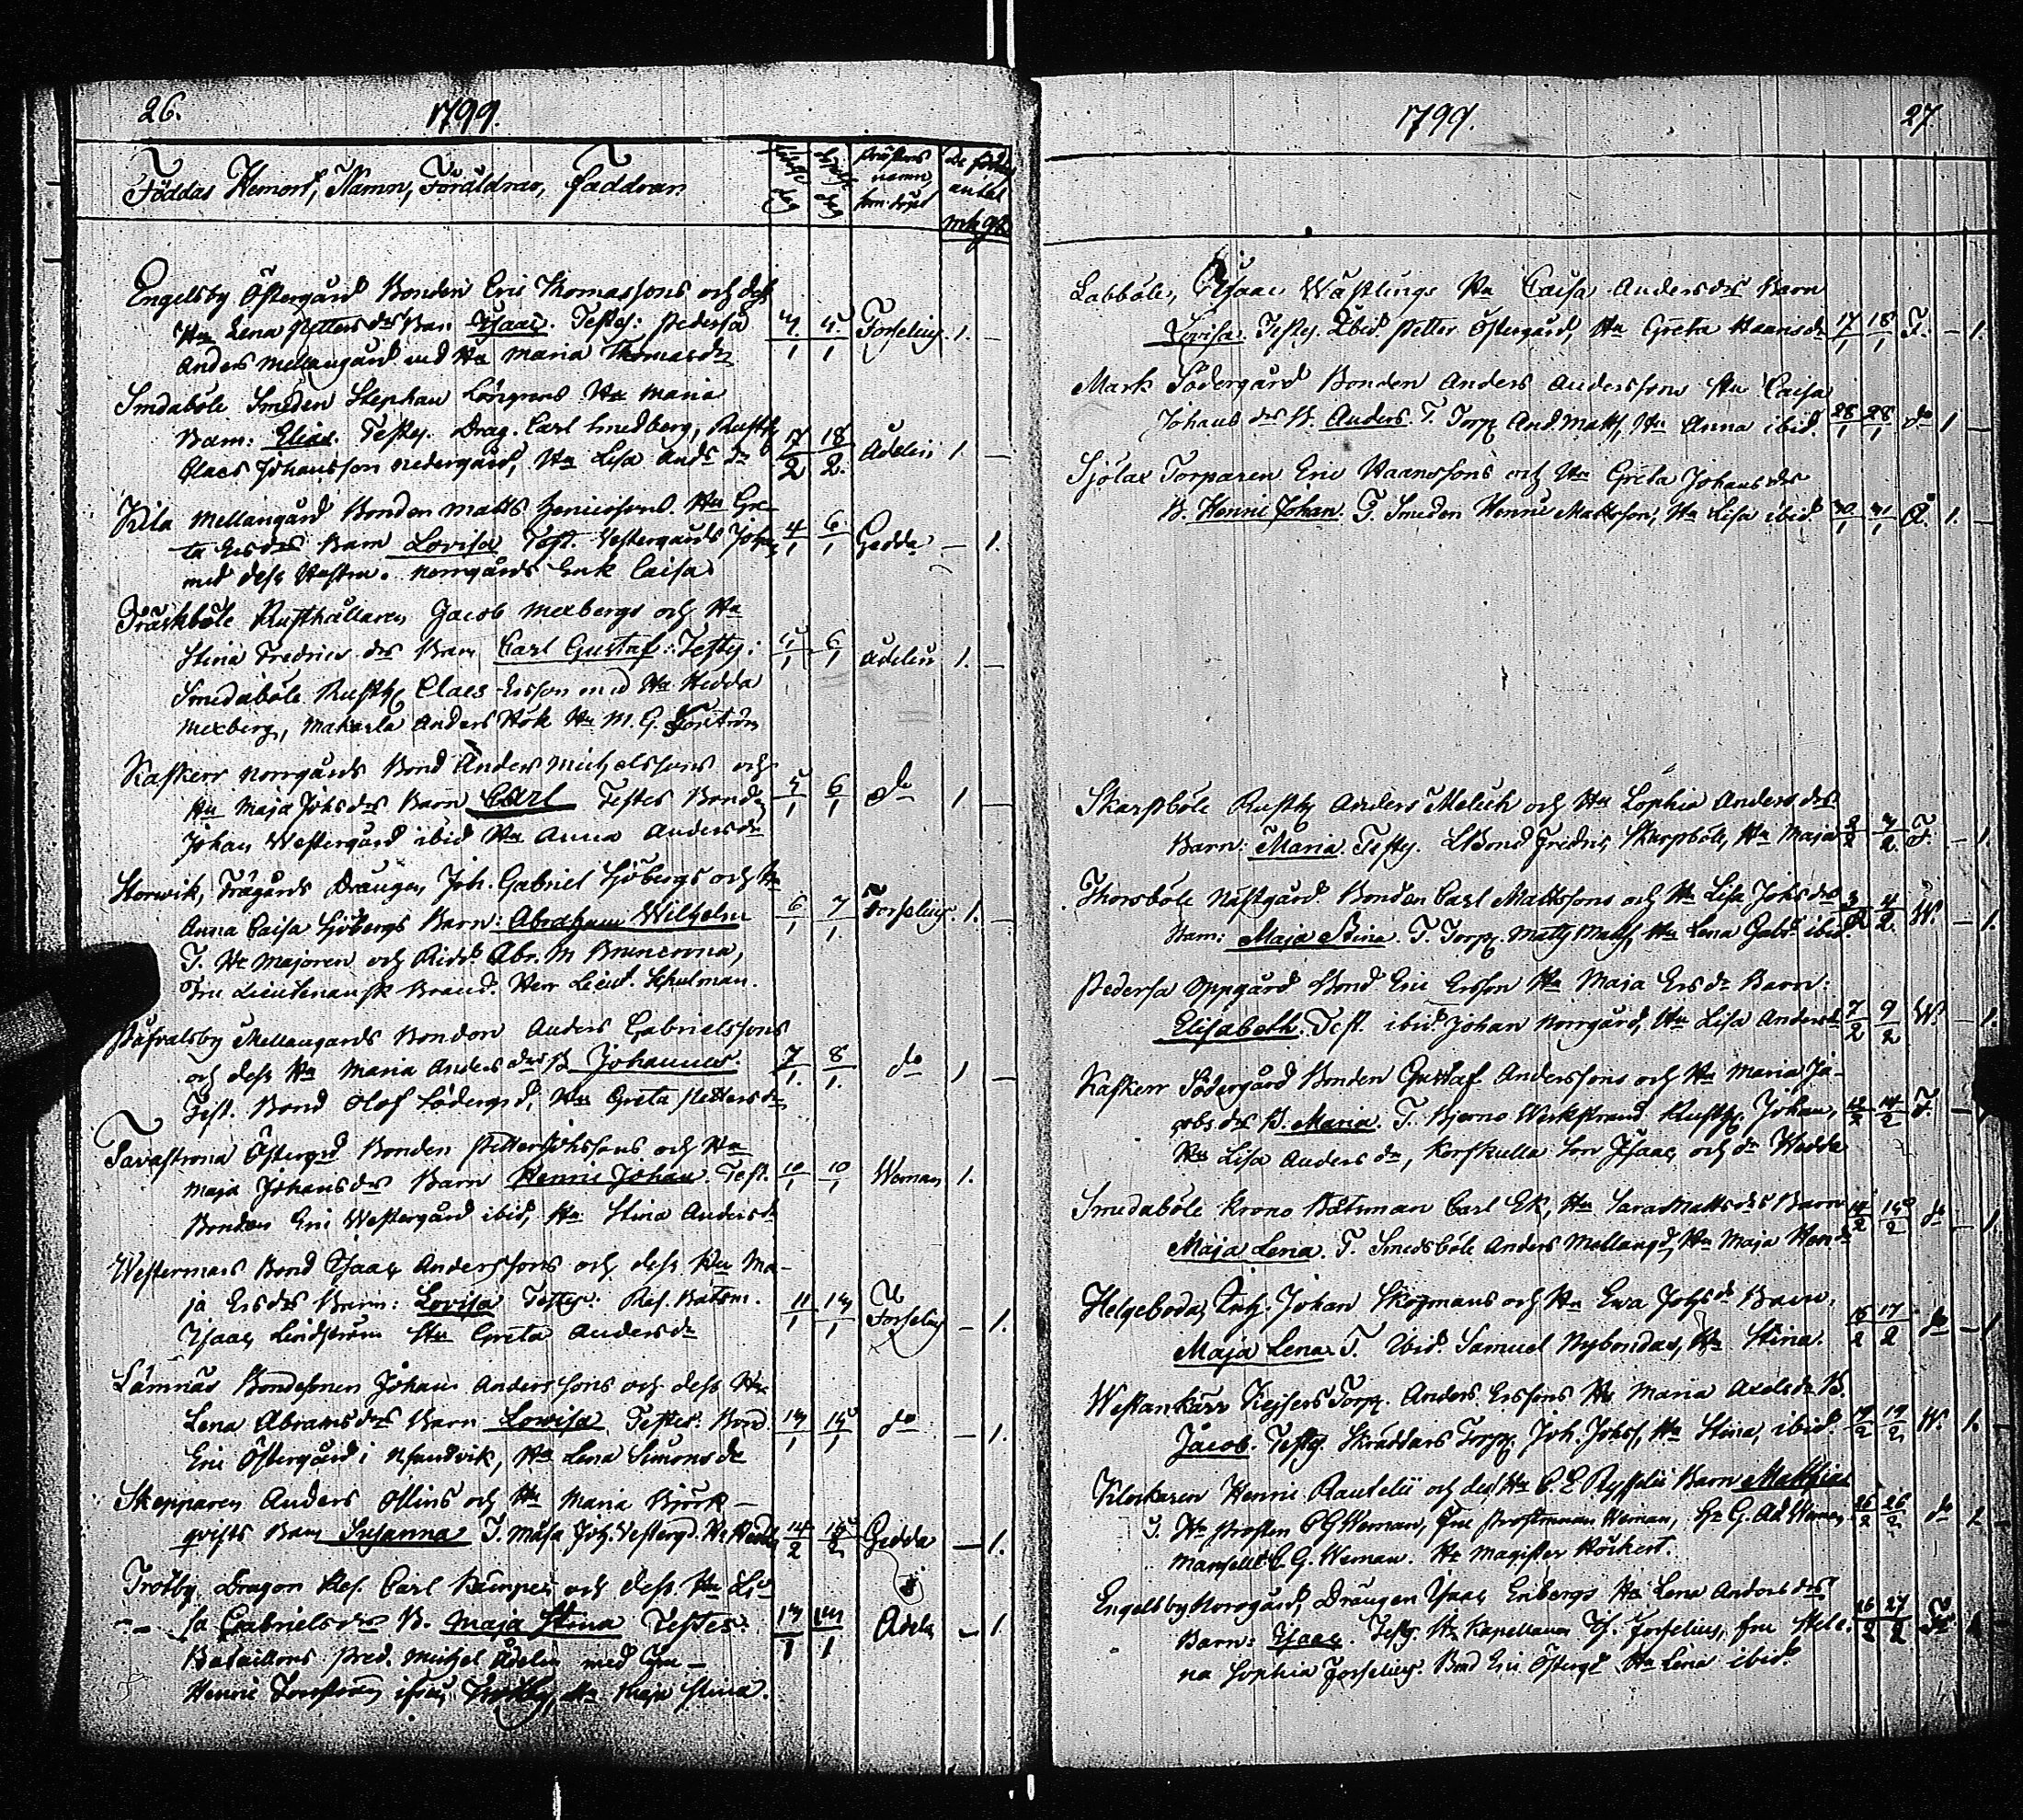 26.
1799.
Föddas Hemort, Namn, Föräldrar, Faddrar.
dag
dag
Prästens namn som döpt
De födas antal
mk qk
Engelsby Östergård Bonden Eric Thomassons och dess
Hu Lena Pettersdrs Barn Isaac. Testes: Pedersa
Anders Mellangård med Hu Maria Thomasdr
4/1 5/1 Forselius 1. —
Smedaböle Smeden Stephan Löngrens Hu Maria
Barn: Elias. Testes. Drag. Carl Smedberg, Rusth
Claes Johansson Nedergård, Hu Lisa Andsdr
17/2 18/2. Adelin 1 —
Kila Mellangård Bonden Matts Henricsons Hu Gre-
ta Ersdrs Barn Lovisa Test. Vestergårds Johan
med dess Hustru. Norrgårds Enk Caisa
4/1 6/1 Gedda — 1.
Träskböle Rusthållaren Jacob Mexbergs och Hu
Stina Fredricsdrs Barn Carl Gustaf. Testes:
Smedaböle Rusth Claes Ersson med Hu Hedda
Mexberg, Makarla Anders Hök Hu M. G.
5/1 6/1 Adelin 1. —
Kaskerr Norrgårds Bond Anders Michelssons och
Hu Maja Johsdrs Barn Carl Testes Bonden
Johan Westergård ibid Hu Anna Andersdr
5/1 6/1 do 1 —
Storwik, Trägårds Drängen Joh. Gabriel Sjöbergs och Hu
Anna Caisa Sjöbergs Barn: Abraham Wilhelm
T. Hr Majoren och Ridd. Abr. M Brunerona,
Fru Lieutenansk Brand. Herr Lieut. Schulman.
6/1 7/1 Forselius. 1. —
Påfvalsby Mellangards Bonden Anders Gabrielssons
och dess Hu Maria Andersdrs B Johannes
Test. Bond Olof Södergrd, Hu Greta Pettersdr
7/1. 8/1. do 1 —
Tavastrona Östergrd Bonden Petter Johssons och Hu
Maja Johansdrs Barn Henric Johan. Test.
Bonden Eric Westergård ibid, Hu Stina Andersdr
10/1 10/1 Woman 1.
Westermars Bond Isaac Anderssons och dess Hu Ma-
ja Ersdrs Barn: Lovisa Testes. Res. Båtsm.
Isaac Lindström Hu Greta Andersdr
11/1 13/1 Forselius — 1.
Lämnäs Bondesonen Johan Anderssons och dess Hu
Lena Abramsdrs Barn Lovisa Testes. Bond
Eric Östergård i Sandvik, Hu Lena Simonsdr
13/1 15/1 do — 1.
Skepparen Anders Ollins och Hu Maria Björk-
qvists Barn Susanna T. Måsa Joh. Vestergd. Hr Hedd
14/2 15/2 Gedda — 1.
Trotby Dragon Res. Carl Kämpes och dess Hu Li-
sa Gabrielsdrs B. Maja Stina Testes:
Bataillons Pred. Michel Adelin med
Henric Forsström Trotby, Hu Maja Stina.
13/1 14/1 Adel — 1.
1799.
27.
Labböle, Isaac Wästlings Hu Caisa Andersdrs Barn
Lovisa. Testes. Ibid Petter Östergård, Hu Greta Haansdr
17/1 18/1 F. — 1.
Mark Södergård Bonden Anders Anderssons Hu Caisa
Johansdrs B. Anders. T. Torp And. Matts, Hu Anna ibid.
28/1 28/1 do 1 —
Sjölax Torparen Eric Haanssons och Hu Greta Johansdrs
B. Henric Johan. T. Smeden Henric Mattsson, Hu Lisa ibid.
30/1 31/1 A. 1. —
Skarpböle Rusth Anders Melich och Hu Sophia Andersdrs
Barn: Maria. Testes. Bond Fredric Skarpböle, Hu Maja
2/2 3/2. F. — 1.
Thorsböle Näsgård Bonden Carl Mattssons och Hu Lisa Johsdrs
Barn: Maja Stina. T. Torp Matts Matts, Hu Lena Gabrd ibid.
3/2 4/2 W. — 1.
Pedersa Oppgård Bond Eric Ersson Hu Maja Ersdr Barn:
Elisabeth. Test. ibid. Johan Norrgård, Hu Lisa Andersdr
7/2 9/2 W. — 1.
Kaskerr Södergård Bonden Gustaf Anderssons och Hu Maria Ja-
cobsdrs B. Maria. T. Bjerno Werkstrand Rusth Johan,
Hu Lisa Andersdr, Korskulla Son Isaac och dr Hedda
12/2 14/2 F. —
Smedaböle Krono Båtsman Carl Ek, Hu Sara Mattsdrs Barn
Maja Lena. T. Smedsböle Anders Mellangd, Hu Maja Hendr
14/2 15/2 do — 1.
Helgeboda, Johan Skogmans och Hu Ewa Johsdr Barn.
Maja Lena T. Ibid. Samuel Nybondas, Hu Stina.
16/2 17/2 do — 1
Westankärr Kejsers Torp. Anders Erssons Hu Maria Axelsdr B.
Jacob. Testes. Skräddars Torp Joh. Johss, Hu Stina, ibid.
19/2 19/2 W. 1. —
Klockaren Henric Rautelii och dess Hu C. E. Rysselii Barn Matthias
T. Hr Prosten C G Weman, Fru Prostinnan Weman, Hr G. Ad. Weman
Mamsell C. G. Weman. Hr Magister Höckert.
26/2 26/2 do 1 —
Engelsby Norrgård, Drängen Isaac Enbergs Hu Lena Andersdrs
Barn: Isaac. Testes. Hr Kapellanen Is. Forselius, Fru Hele-
na Sophia Forselius. Bond Eric Östergd Hu Lena ibid.
26/2 27/2 F 1